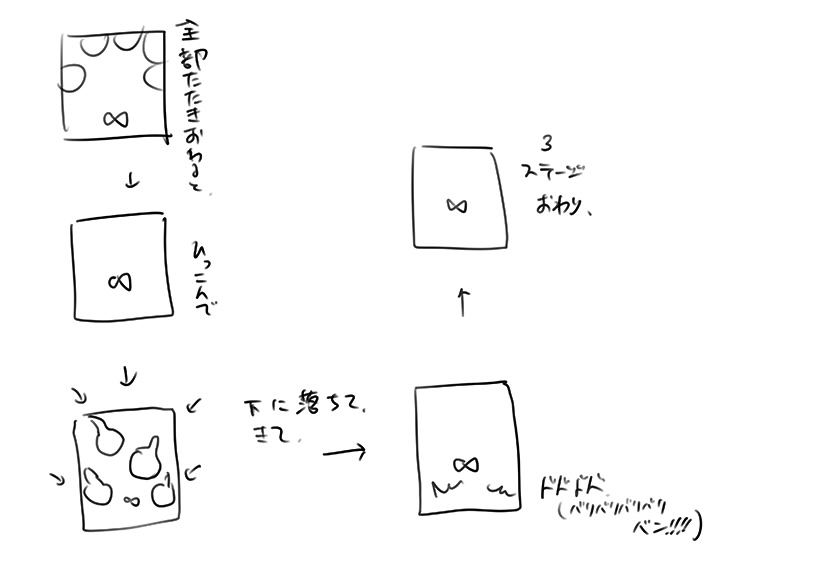 全部たたきおわると、
ひっこんで
下に落ちて、
きて、
ドドドド
(バリバリバリバリ
バン!!!!)
3
ステージ
おわり、